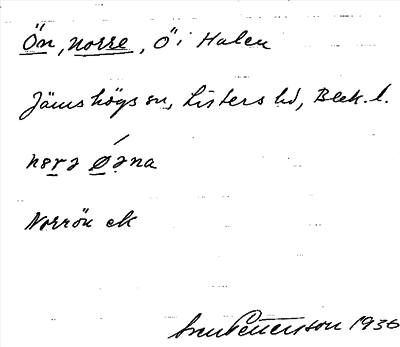 Ön, norre, Ö i Halen
Jämshögs sn, Listers hd, Blek. l.
Norrön ek
Sven Pettersson 1936